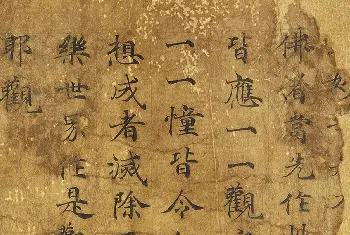 佛者當先作此
皆應一一觀之
一一憧皆令
想成者滅除
樂世界作是觀
耶觀